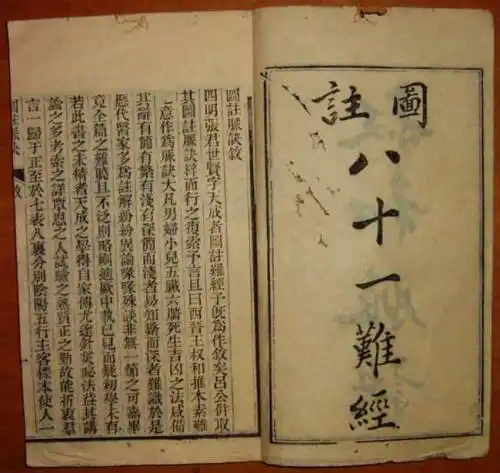 圖註
八十一難經
圖註脈訣敘
四明張君世賢字天成者圖註難經予旣爲作敘矣呂公併取
其圖註脈訣梓而行之復索予言且曰西晉王叔和推本素難
之意作爲脈訣大凡男婦小兒五臟六腑死生吉凶之法咸備
其辭有簡有繁有淺有深簡而淺者易知繁而深者難識於是
歷代醫家多爲註解紛紛異論喙喙殊談非無一節之可嘉畢
竟全篇之難聽且不泛則略剛適中執己見而疑初學未有
若此書之未精者天成之學得自家傳尤達針灸砭法茲其講
論之多考索之詳之人試驗之熟質正之勤故能折衷群
言一歸于正至於七表八裏分別陰陽五行主客標本使人一
圖註脈訣 敘